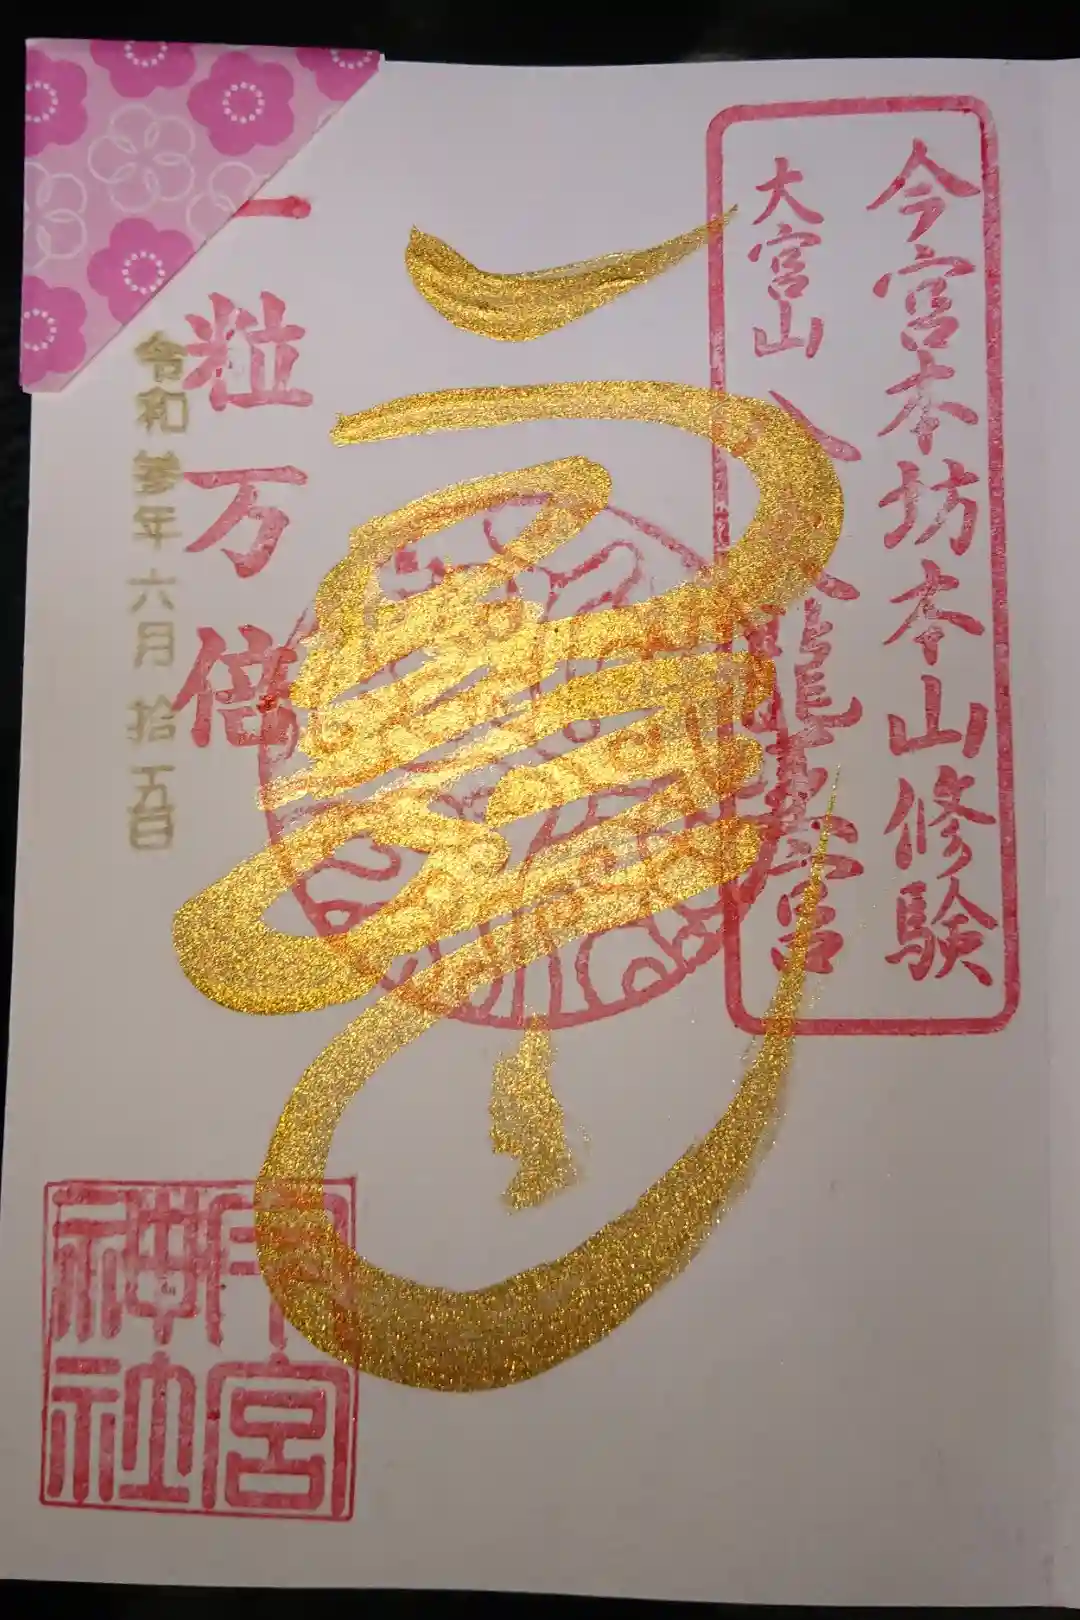 今宮本坊本山修験
大宮山 八大龍王宮
一粒万倍
令和参年六月拾五日
今宮
神社